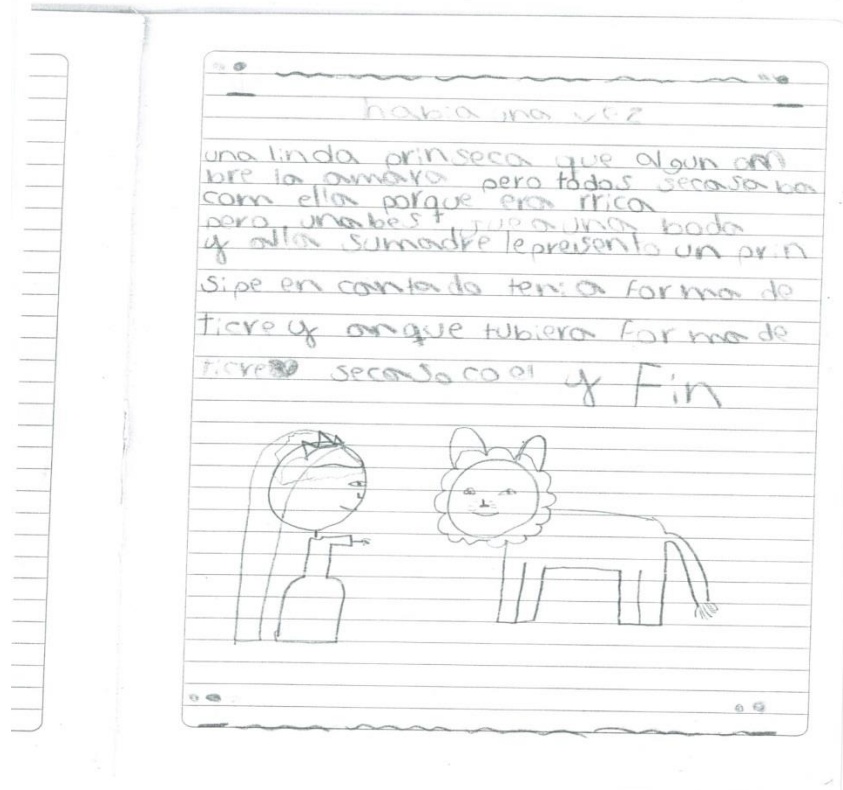 habia una vez
una linda prinseca que algun om
bre la amara pero todos secasaba
com ella porque era rrica
pero unabes fue a una boda
y alla sumadre lepresento un prin
sipe en cantado tenia forma de
ticre y anque tubiera forma de
ticre secaso co el y Fin